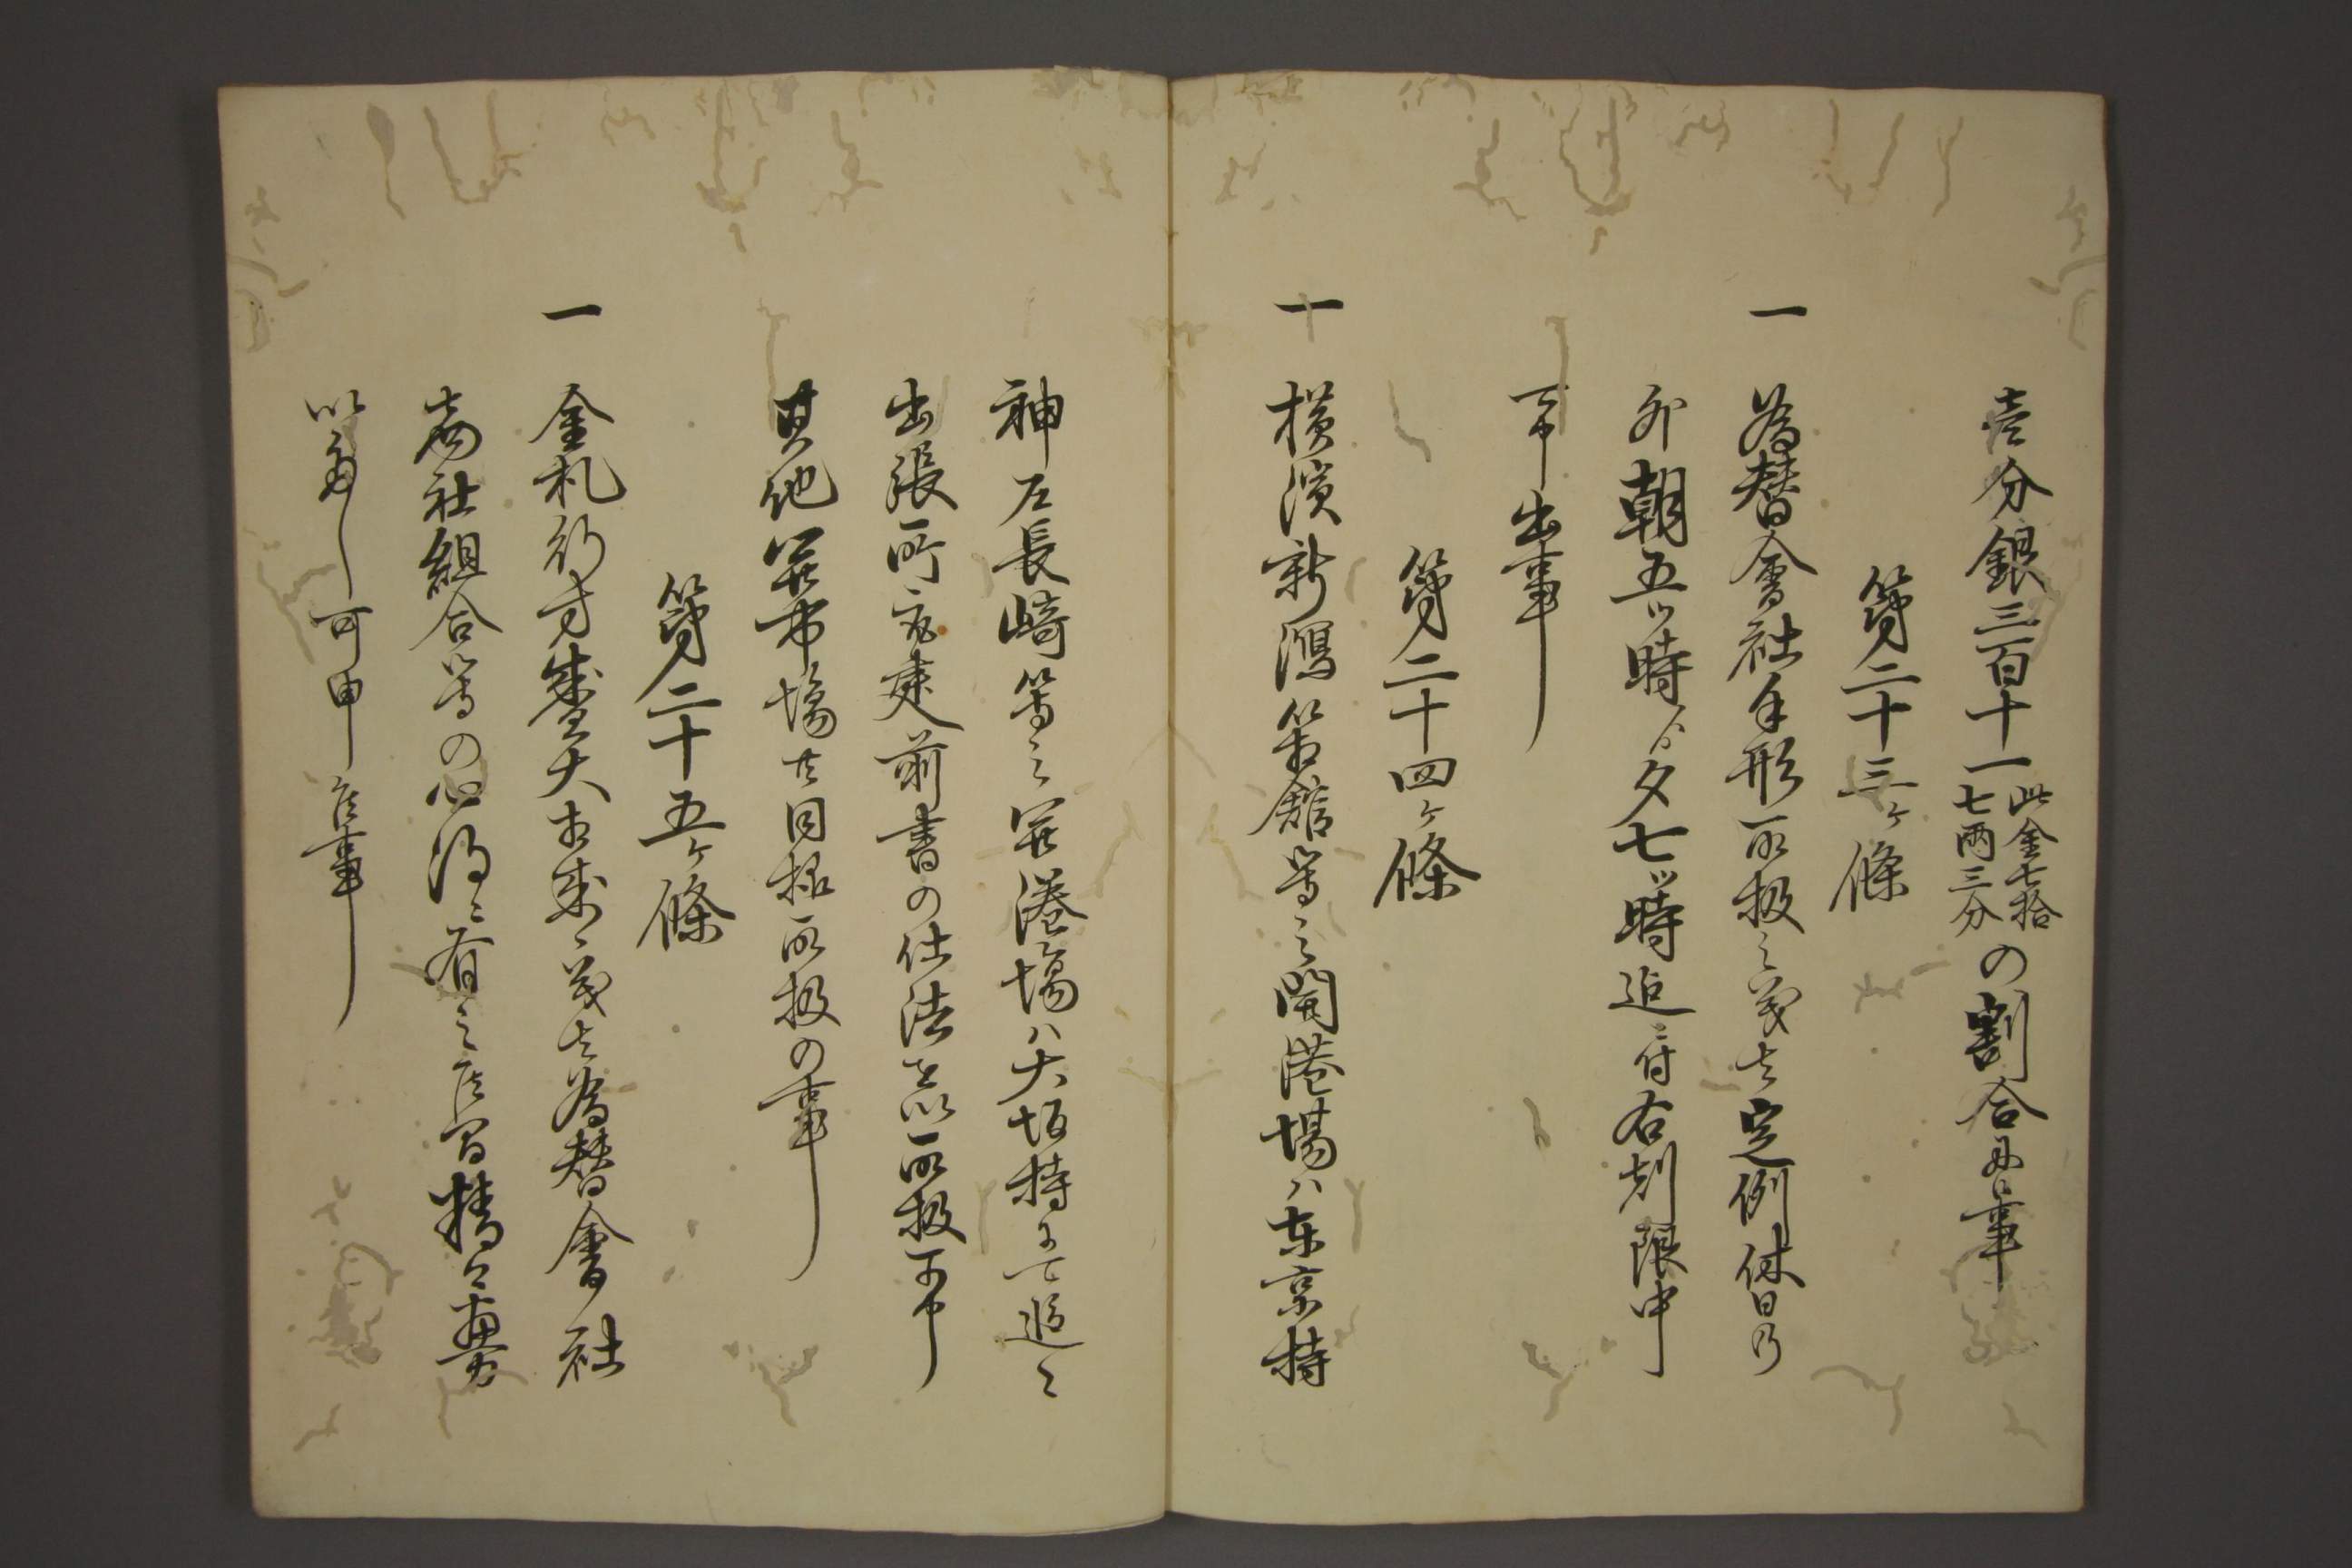 壱分銀三百十一此金七拾七両三分の割合の事
第二十三ヶ條
一 為替會社手形取扱之義者定例休日乃
外朝五ッ時ゟ夕七ッ時迄ニ付右刻限中
可申出事
第二十四ヶ條
一 横濱新潟箱舘等之開港場ハ東京持
神戸長崎等之開港場ハ大坂持ニ而追々
出張所取建前書の仕法を以取扱可申
其他開市場共同様取扱の事
第二十五ヶ條
一 金札行方盛大出来ニ義者為替會社
商社組合等の心得ニ有之候間精々勇
いたし可申候事